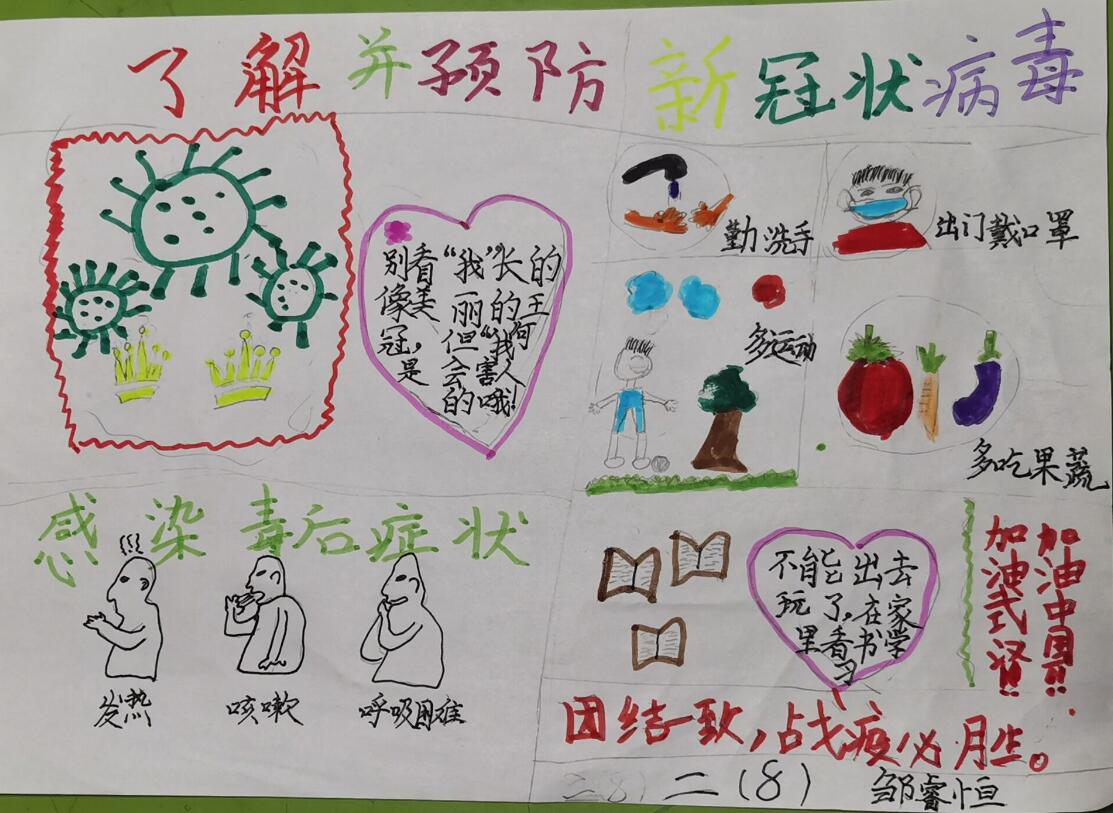 了解并预防新冠状病毒
别看“我”长的
像美丽的王
冠,但“我”可
是会害人
的哦!
勤洗手
出门戴口罩
多运动
多吃果蔬
感染毒后症状
发热
咳嗽
呼吸困难
不能出去
玩了,在家
里看书学
习
加油中国!!
加油武汉!!
团结一致,战疫必胜。
二(8) 二(8) 邹睿恒